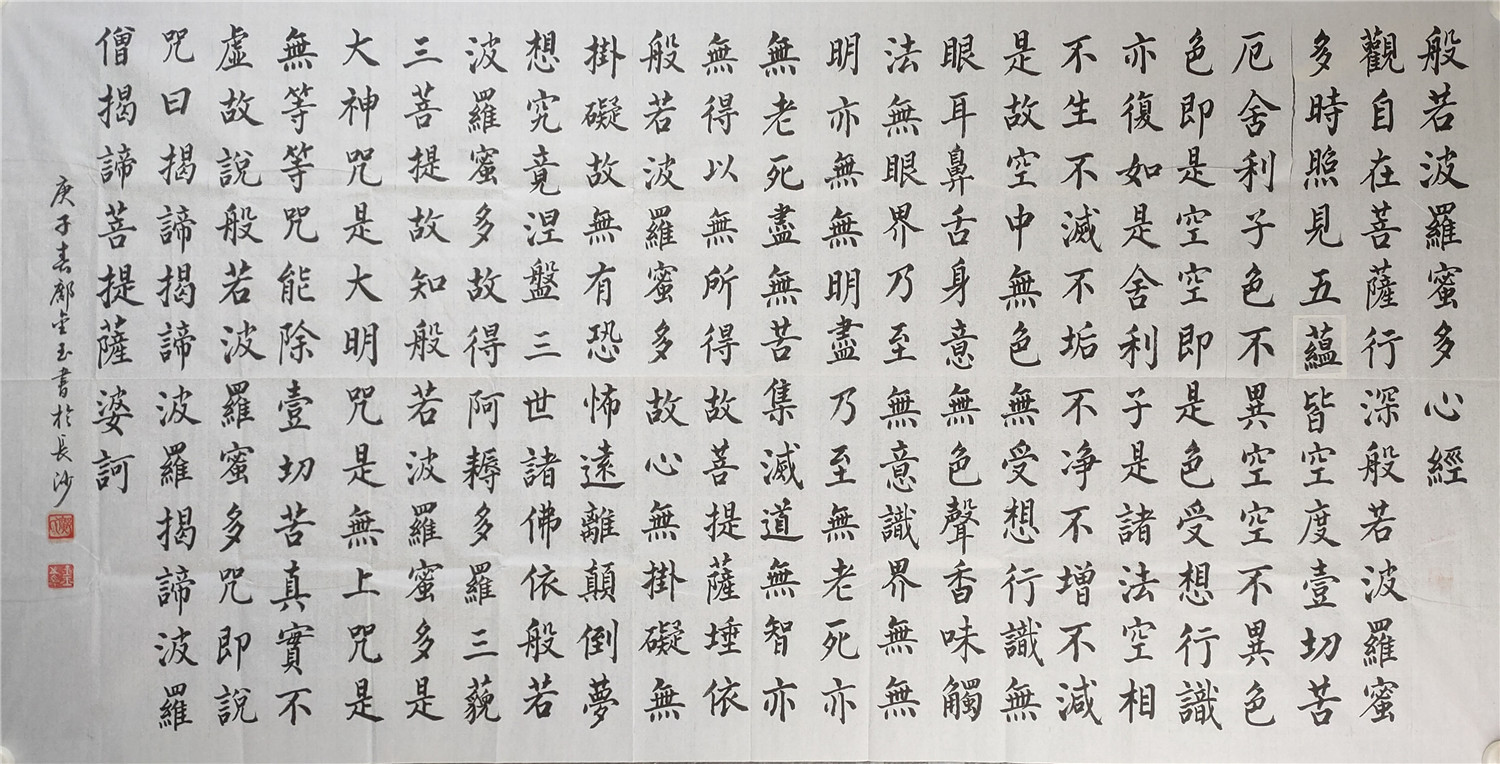 般若波羅蜜多心經
觀自在菩薩行深般若波羅蜜
多時照見五蘊皆空度壹切苦
厄舍利子色不異空空不異色
色即是空空即是色受想行識
亦復如是舍利子是諸法空相
不生不滅不垢不净不增不減
是故空中無色無受想行識無
眼耳鼻舌身意無色聲香味觸
法無眼界乃至無意識界無無
明亦無無明盡乃至無老死亦
無老死盡無苦集滅道無智亦
無得以無所得故菩提薩埵依
般若波羅蜜多故心無掛礙無
掛礙故無有恐怖遠離顛倒夢
想究竟涅盤三世諸佛依般若
波羅蜜多故得阿耨多羅三藐
三菩提故知般若波羅蜜多是
大神咒是大明咒是無上咒是
無等等咒能除壹切苦真實不
虛故說般若波羅蜜多咒即說
咒曰揭諦揭諦波羅揭諦波羅
僧揭諦菩提薩婆訶
庚子春金玉書於長沙